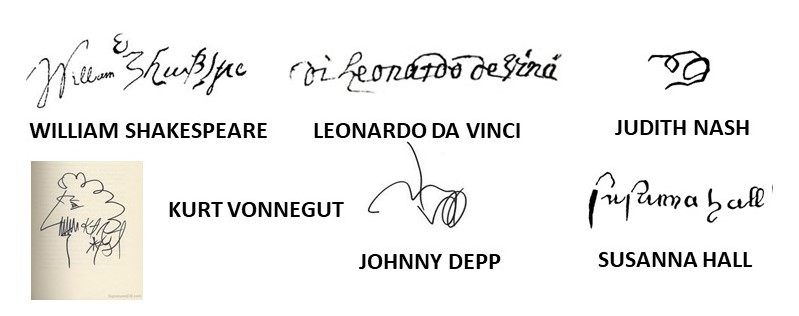 William Shakspe
di Leonardo de Vinci
WILLIAM SHAKESPEARE
LEONARDO DA VINCI
JUDITH NASH
KURT VONNEGUT
Susanna hall
JOHNNY DEPP
SUSANNA HALL